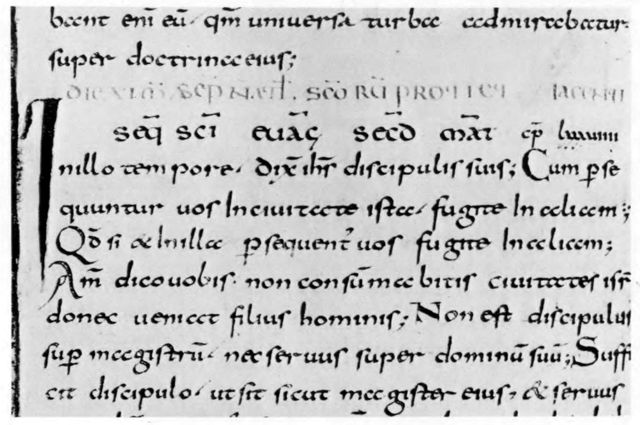 bant enī eū · qm̄ universa turba admirabatur
super doctrina eius;
SCŌRŪ PROTI ET
Seq̄ sc̄i evāg secd̄ mat̄ cp̄
In illo tempore · dix̄ ih̄s discipulis suis; Cum ꝑse
quuntur vos In civitate ista · fugite In aliam;
Qd̄ si & In illa ꝑsequent̄ vos fugite In aliam;
Am̄ dico vobis · non consūmabitis civitates isr̄
donec veniat filius hominis; Non est discipulus
sup̄ magistrū · nec servus super dominū suū; Suffi
cit discipulo · ut sit sicut magister eius · & servus